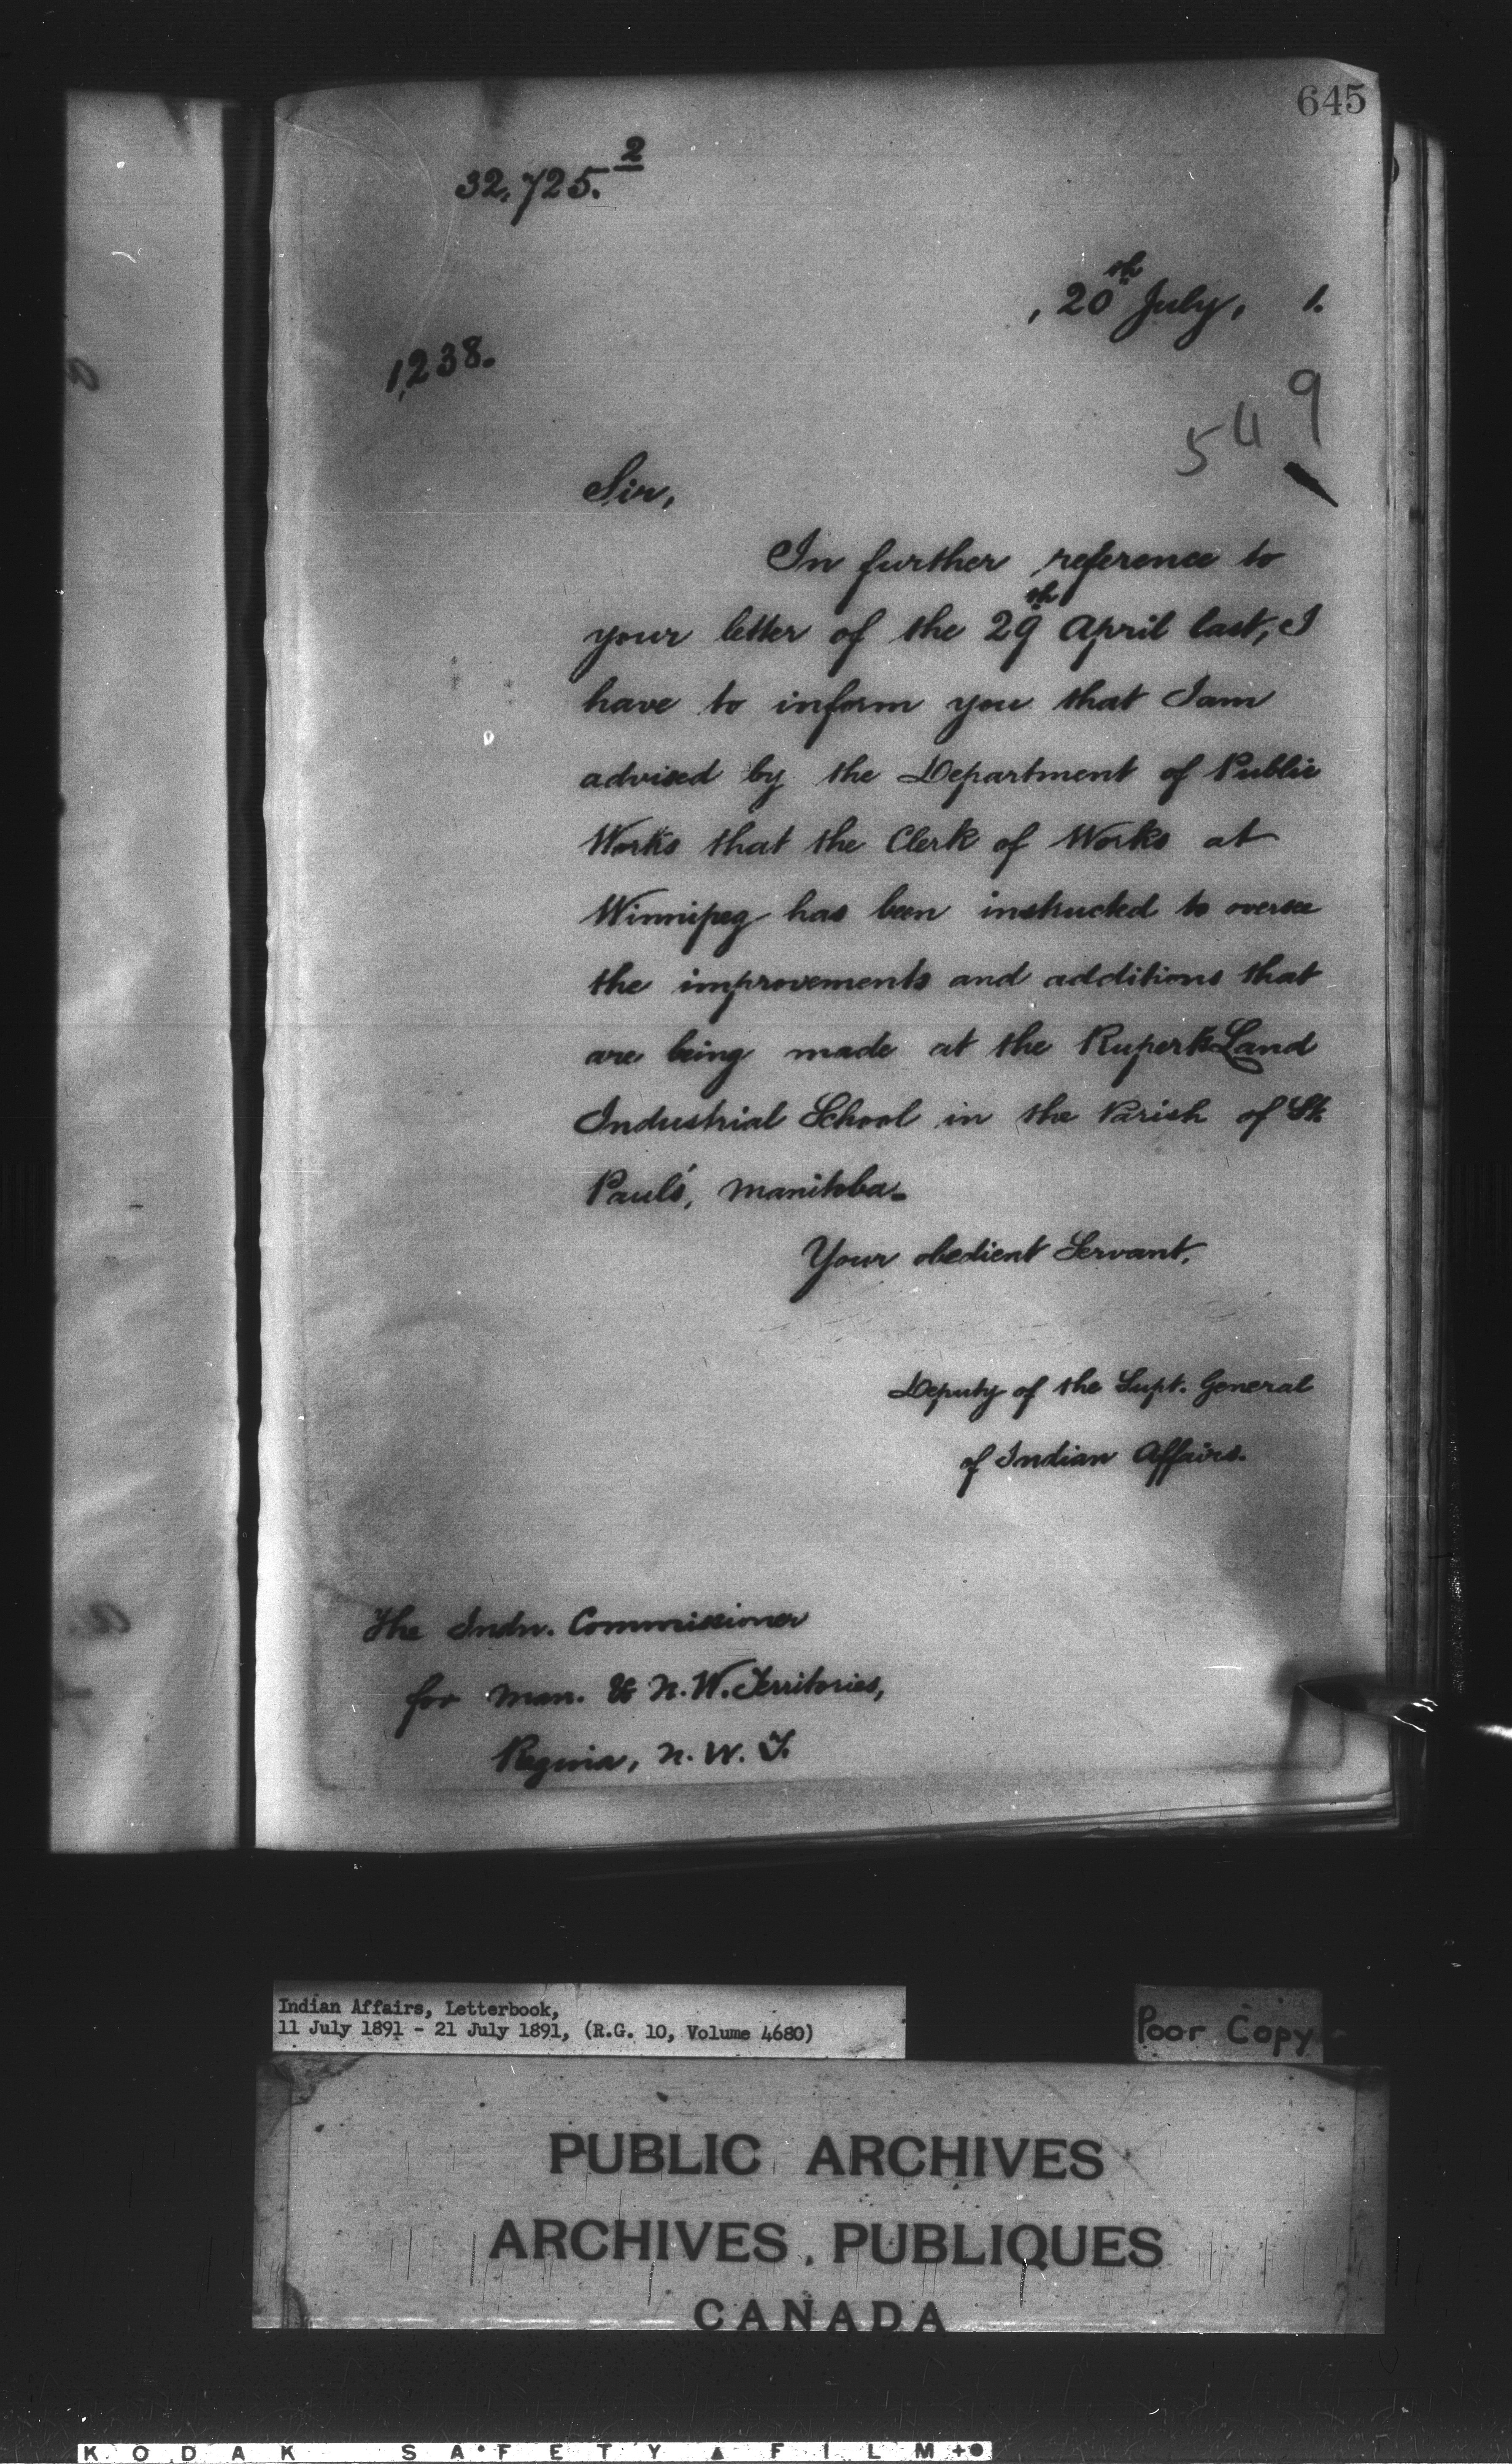 645
32,725.2
, 20th July, 1.
1,238.
549
Sir,
In further reference to
your letter of the 29th April last, I
have to inform you that I am
advised by the Department of Public
Works that the Clerk of Works at
Winnipeg has been instructed to oversee
the improvements and additions that
are being made at the Ruperts Land
Industrial School in the Parish of St.
Paul's, Manitoba.
Your obedient Servant,
Deputy of the Supt. General
of Indian Affairs.
The Indn. Commissioner
for Man. & N.W. Territories,
Regina, N. W. T.
Indian Affairs, Letterbook,
11 July 1891 - 21 July 1891, (R.G. 10, Volume 4680)
Poor Copy
PUBLIC ARCHIVES
ARCHIVES PUBLIQUES
CANADA
KODAK SAFETY FILM